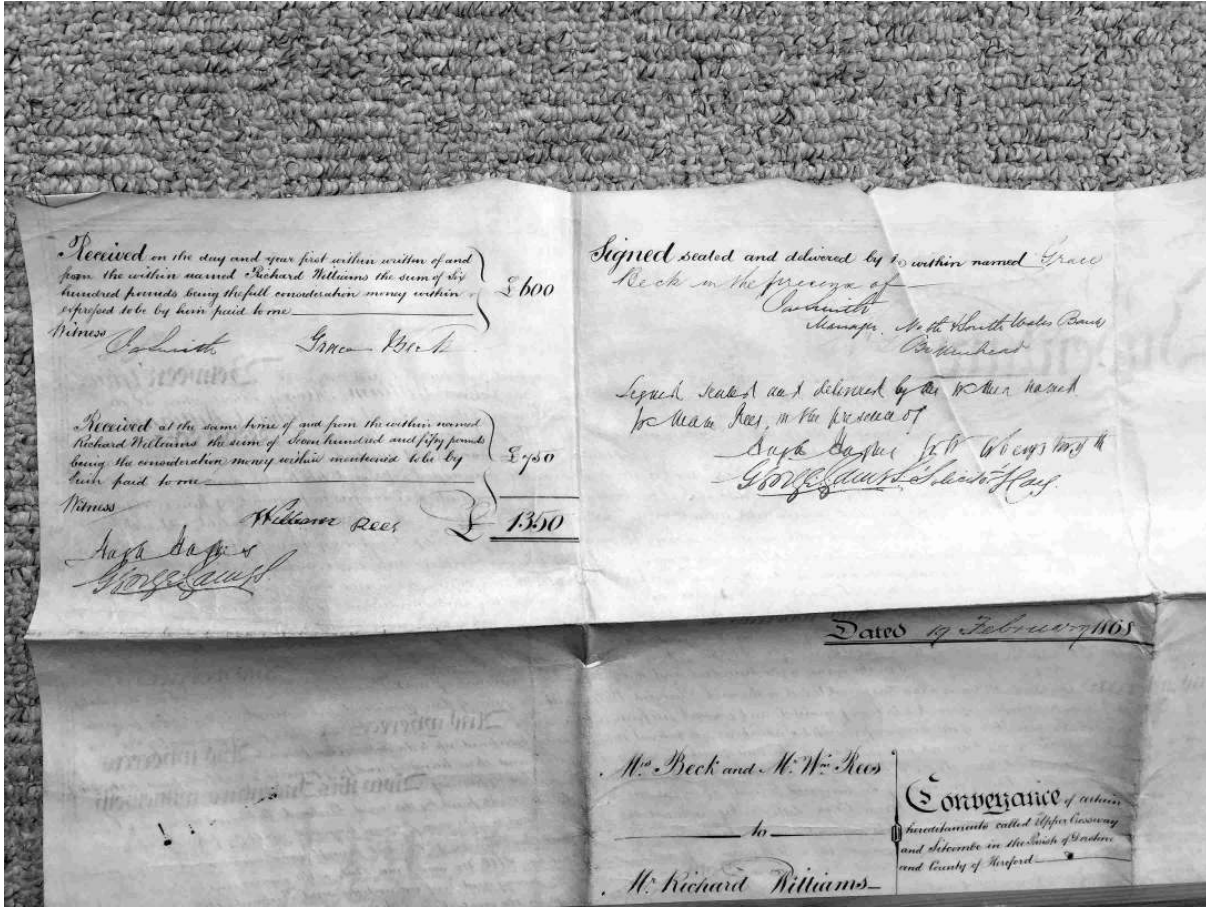 Received on the day and year first within written of and
from the within named Richard Williams the sum of Six
hundred pounds being the full consideration money within
expressed to be by him paid to me
£600
Witness
Grace Beck
Received at the same time of and from the within named
Richard Williams the sum of Seven hundred and fifty pounds
being the consideration money within mentioned to be by
him paid to me
£750
Witness
William Rees £ 1350
George James
Signed sealed and delivered by within named Grace
Beck in the presence of
Smith
Manager. North & South Wales Bank
Birkenhead
Signed sealed and delivered by the within named
William Rees, in the presence of
George James Solicitor
Dated 19 February 1868
Mrs Beck and Mr Wm Rees
to
Mr Richard Williams
Conveyance of certain
hereditaments called Upper Crossway
and in the Parish of
and County of Hereford